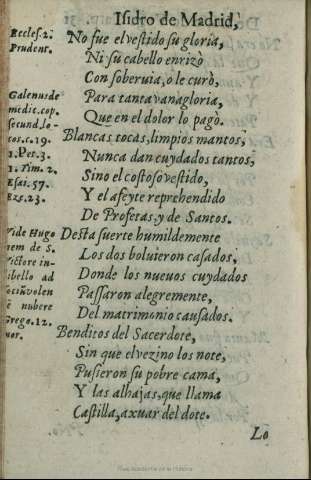 Isidro de Madrid,
No fue el vestido su gloria,
Ni su cabello enrizò
Con soberuia, o le curò,
Para tanta vanagloria,
Que en el dolor lo pagò.
Blancas tocas, limpios mantos,
Nunca dan cuydados tantos,
Sino el costoso vestido,
Y el afeyte reprehendido
De Profetas, y de Santos.
Desta suerte humildemente
Los dos boluieron casados,
Donde los nueuos cuydados
Passaron alegremente,
Del matrimonio causados.
Benditos del Sacerdote,
Sin que el vezino los note,
Pusieron su pobre cama,
Y las alhajas, que llama
Castilla, axuar del dote.
Lo
Eccles. 2.
Prudent.
Galenus de
medic. cop.
secund. lo-
cos. c. 19.
1. Pet. 3.
1. Tim. 2.
Esai. 57.
Eze. 23.
Vide Hugo
nem de S.
Victore in
libello ad
nubere
Grego. 12.
mor.
Real Academia de la Historia